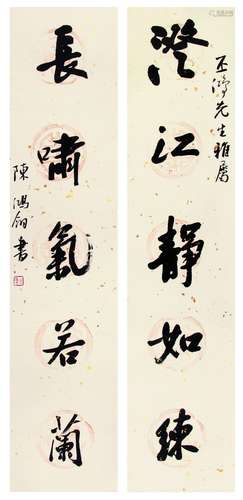 丕鴻先生雅屬
澄江靜如練
長嘯氣若蘭
陳鴻鈞書